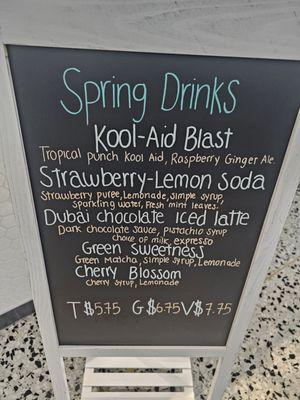 Spring Drinks
Kool-Aid Blast
Tropical punch Kool Aid, Raspberry Ginger Ale.
Strawberry-Lemon Soda
Strawberry puree, Lemonade, simple syrup,
Sparkling water, Fresh mint leaves!
Dubai chocolate Iced latte
Dark chocolate sauce, pistachio syrup
choice of milk, espresso
Green Sweetness
Green Matcha, Simple syrup, Lemonade
Cherry Blossom
Cherry Syrup, Lemonade
T $5.75 G $6.75 V $7.75